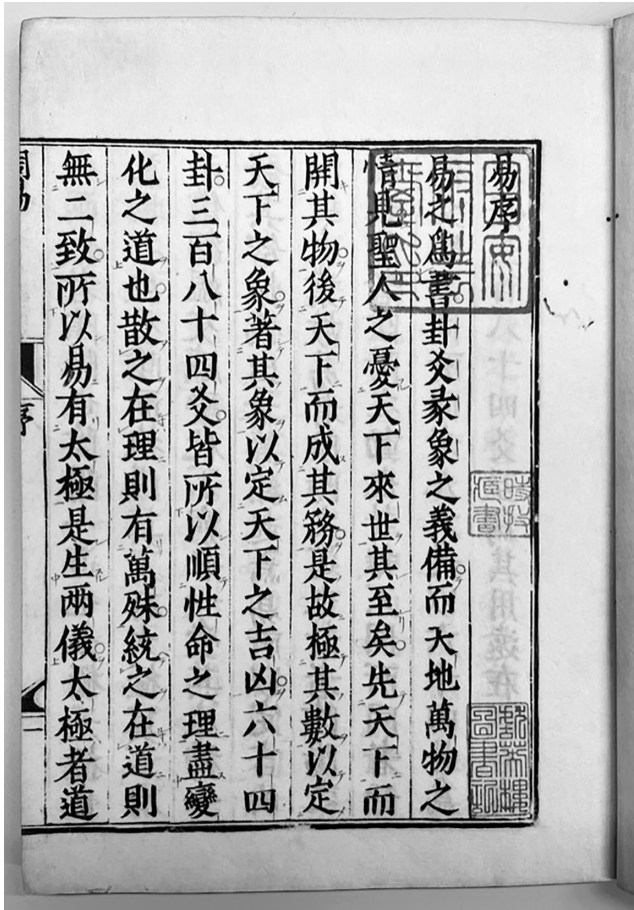 易序
易之爲書卦爻彖象之義備而天地萬物之
情見聖人之憂天下來世其至矣先天下而
開其物後天下而成其務是故極其數以定
天下之象著其象以定天下之吉凶六十四
卦三百八十四爻皆所以順性命之理盡變
化之道也散之在理則有萬殊統之在道則
無二致所以易有太極是生兩儀太極者道
序